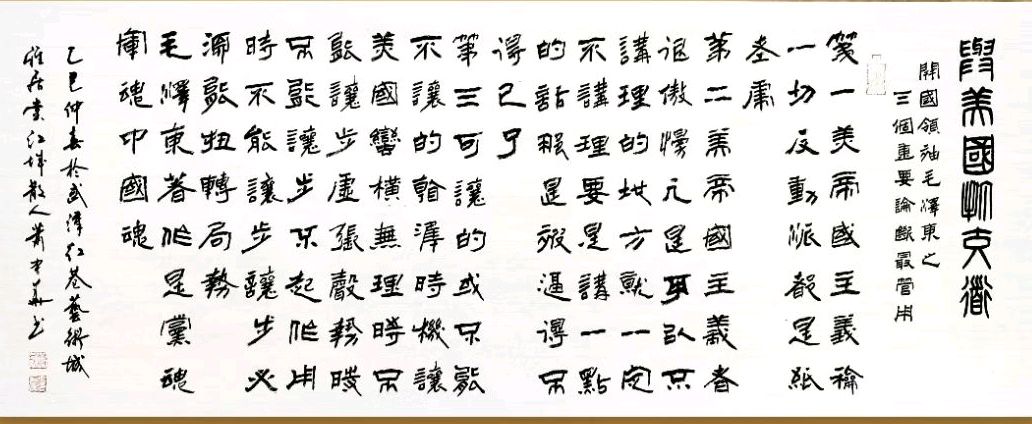 與美國打交道
開國領袖毛澤東之
三個重要論斷最管用
第一美帝國主義和
一切反動派都是紙
老虎
第二美帝國主義者
很傲慢凡是可以不
講理的地方就一定
不講理要是講一點
的話那是被逼得不
得已了
第三可讓的或不能
不讓的看準時機讓
美國蠻橫無理時不
能讓步虛張聲勢時
不能讓步不起作用
時不能讓步讓步必
須能扭轉局勢
毛澤東著作是黨魂
軍魂中國魂
乙巳仲春於武漢紅巷藝術城
雅居堂江城散人才華書